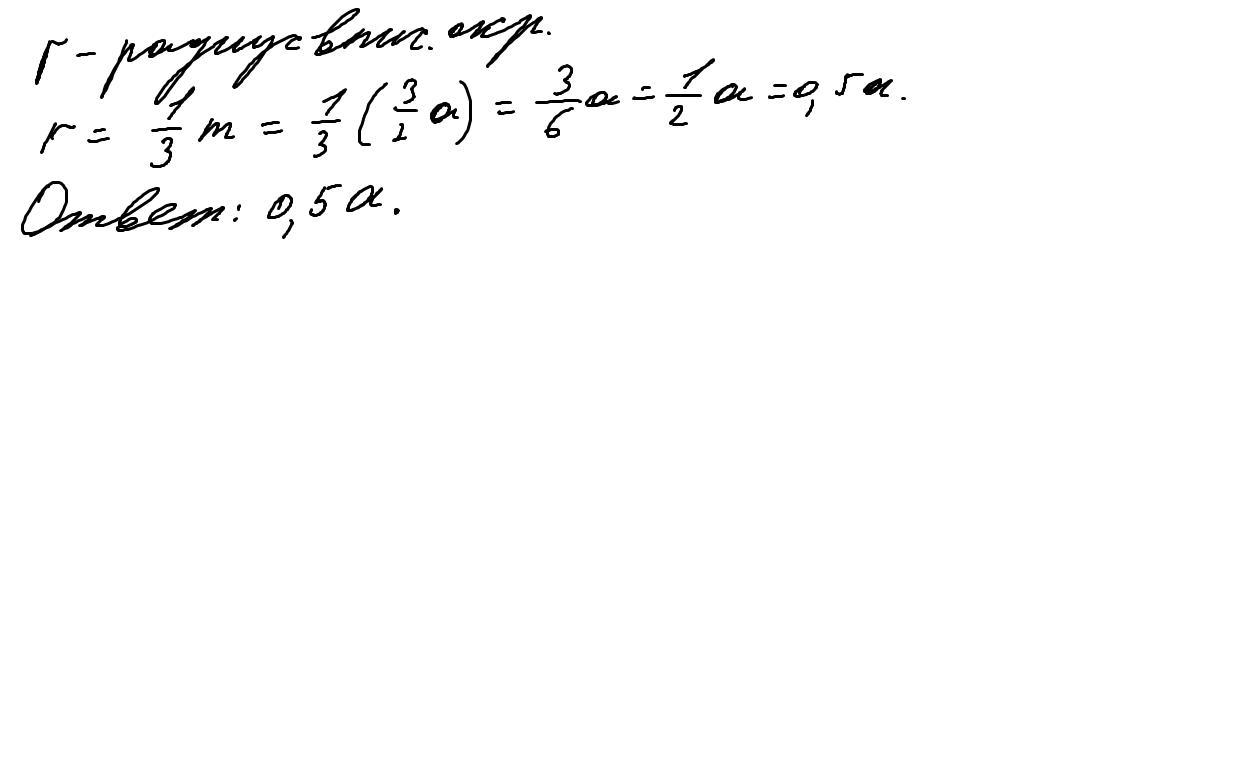 r - радиус впис. окр.
r = 1/3 m = 1/3 (3/2 a) = 3/6 a = 1/2 a = 0,5a.
Ответ: 0,5a.